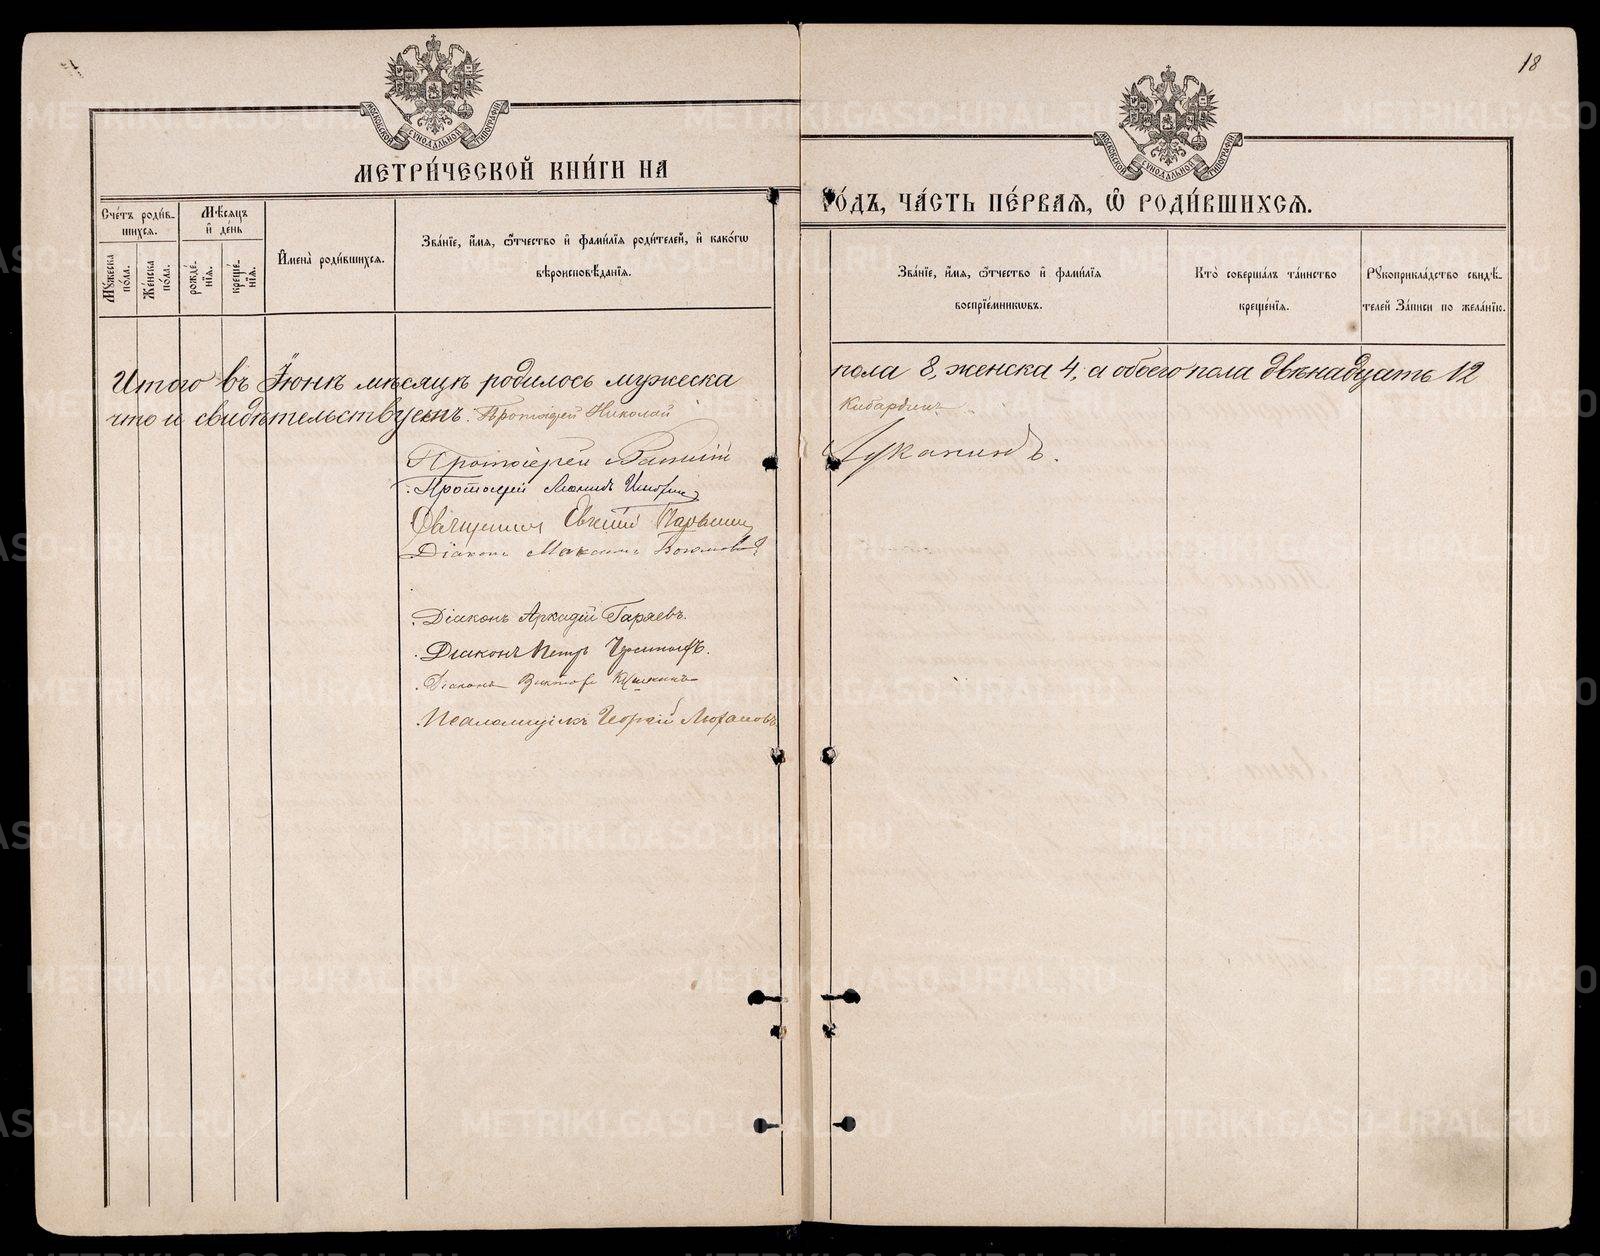 18
МОСКОВСКОЙ СѴНОДАЛЬНОЙ ТИПОГРАФІИ
МОСКОВСКОЙ СѴНОДАЛЬНОЙ ТИПОГРАФІИ
МЕТРИ́ЧЕСКОЙ КНИ́ГИ НА
ГО́ДЪ, ЧА́СТЬ ПЕ́РВАѦ, Ѡ҆ РОДИ́ВШИХСѦ.
Сче́тъ роди́в-
шихсѧ.
Мꙋ́жеска
по́ла.
Же́нска
по́ла.
Мѣ́сѧцъ
и҆ де́нь
рожде́-
нїѧ.
креще́-
нїѧ.
И҆мена̀ роди́вшихсѧ.
Зва́нїе, и҆́мѧ, ѻ҆́тчество и҆ фами́лїѧ роди́телей, и҆ како́гѡ
вѣроисповѣ́данїѧ.
Зва́нїе, и҆́мѧ, ѻ҆́тчество и҆ фами́лїѧ
воспрїе́мникѡвъ.
Кто̀ соверша́лъ та́инство
креще́нїѧ.
Рꙋкоприкла́дство свидѣ́-
телей за́писи по жела́нїю.
Итого въ Іюнѣ мѣсяцѣ родилось мужеска
пола 8, женска 4, а обоего пола двѣнадцать 12
что и свидѣтельствуемъ. Протоіерей Николай
Кибардинъ
Протоіерей
Луканинъ.
Протоіерей Леонидъ
Священникъ Евгеній
Діаконъ Максимъ
Діаконъ Аркадій Гаряевъ.
Діаконъ Петръ
Діаконъ Викторъ
Псаломщикъ Георгій
METRIKI.GASO-URAL.RU